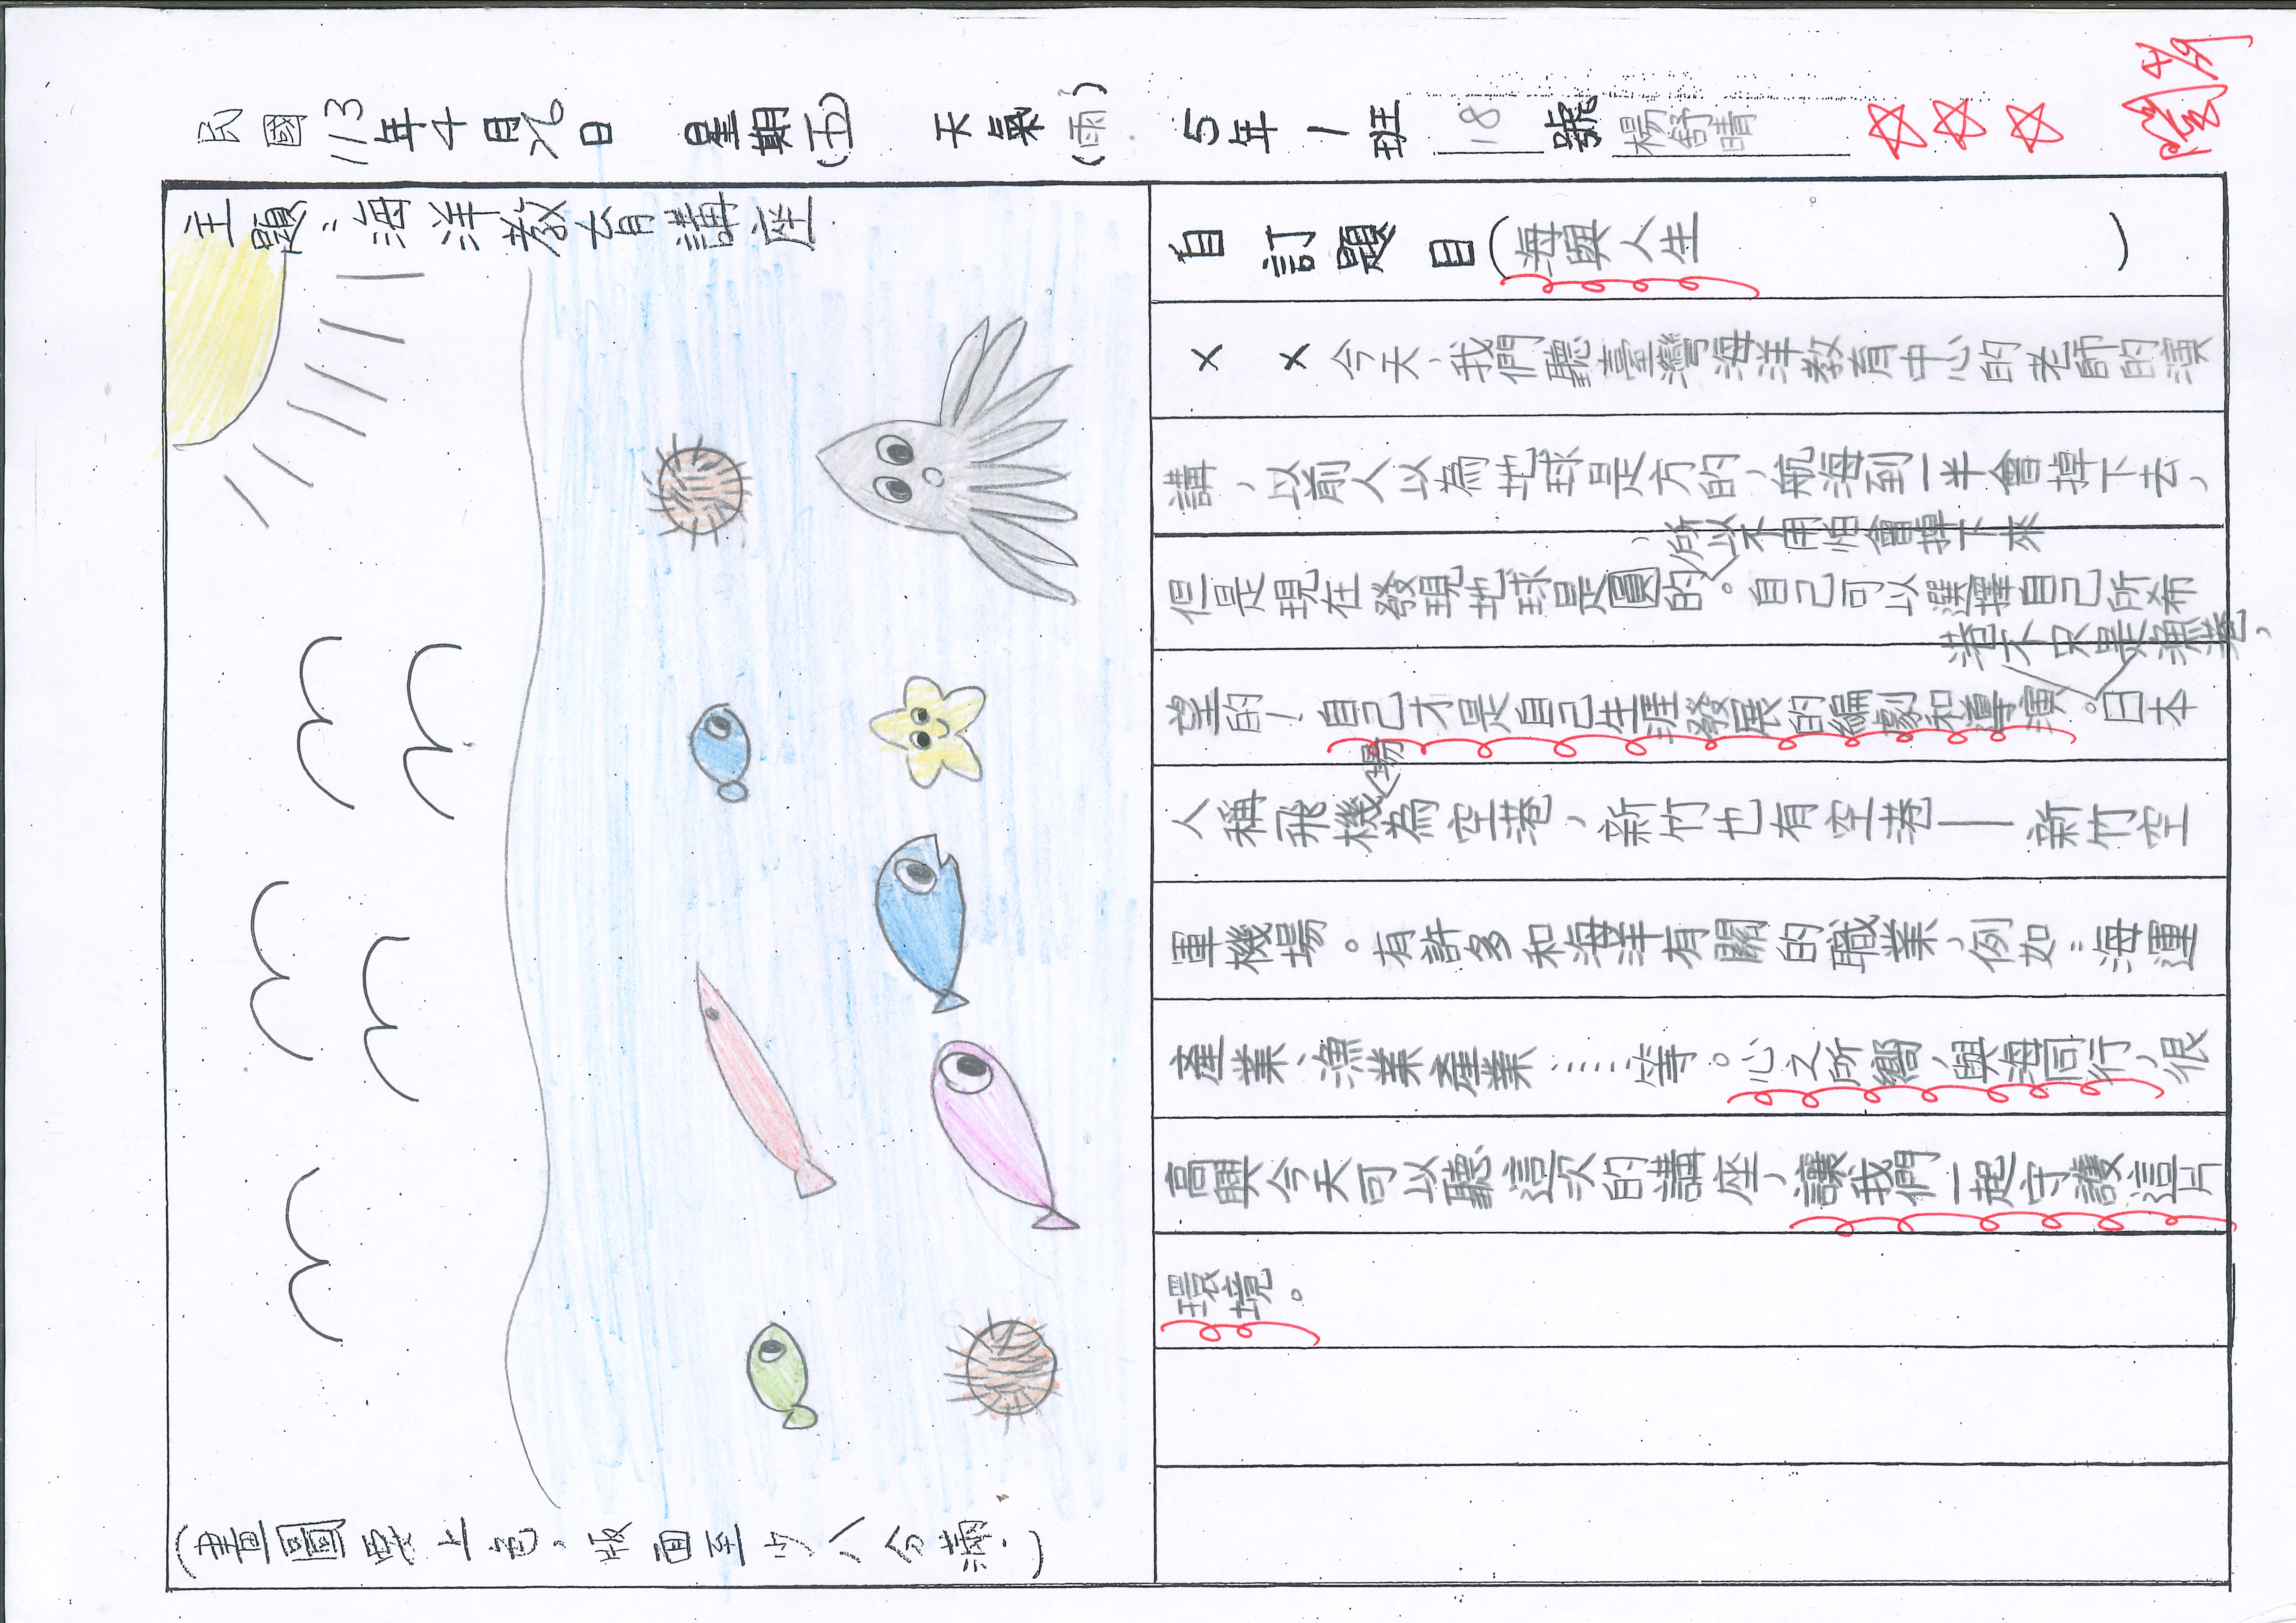 民國113年十月 日 星期(五) 天氣(雨) 5年1班 18號 楊舒晴
主題：海洋教育講座
(畫圖要上色，版面至少八分滿.)
自訂題目(海與人生)
××今天，我們聽臺灣海洋教育中心的老師的演
講，以前人以為地球是方的，航海到一半會掉下去，
，所以不用怕會掉下來
但是現在發現地球是圓的。自己可以選擇自己所希
港不只是漁港，
望的，自己才是自己生涯發展的編劇和導演。日本
場
人稱飛機為空港，新竹也有空港——新竹空
軍機場。有許多和海洋有關的職業，例如：海運
產業、漁業產業……等。心之所嚮，與海同行，很
高興今天可以聽這次的講座，讓我們一起守護這片
環境。